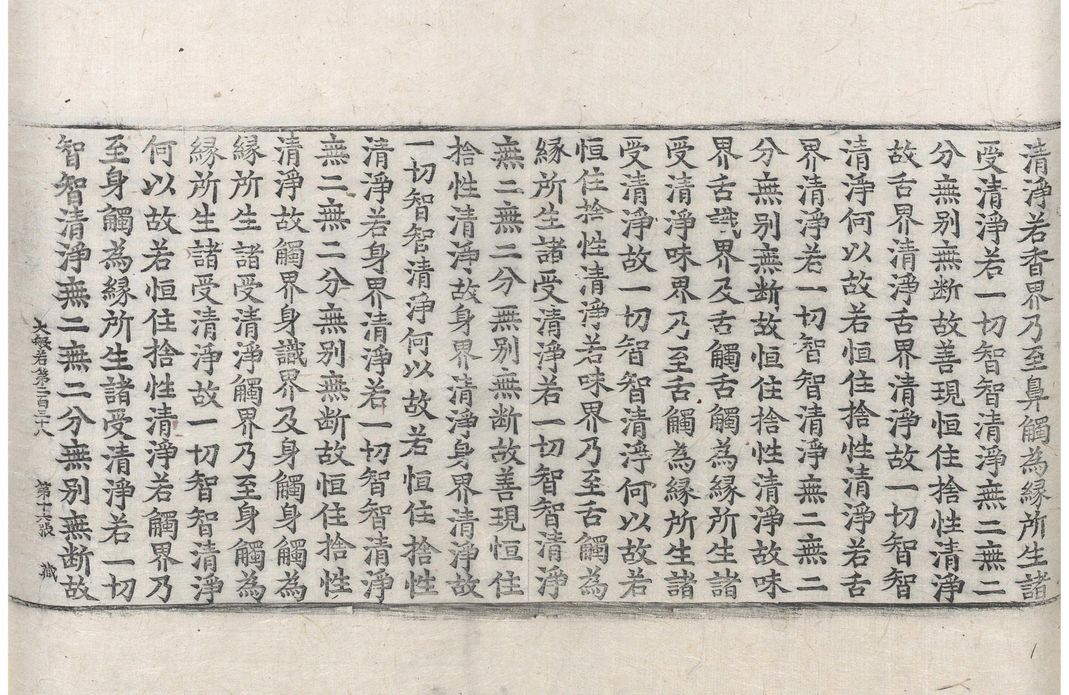 清淨若香界乃至鼻觸為緣所生諸
受清淨若一切智智清淨無二無二
分無別無断故善現恒住捨性清淨
故舌界清淨舌界清淨故一切智智
清淨何以故若恒住捨性清淨若舌
界清淨若一切智智清淨無二無二
分無別無断故恒住捨性清淨故味
界舌識界及舌觸舌觸為緣所生諸
受清淨味界乃至舌觸為緣所生諸
受清淨故一切智智清淨何以故若
恒住捨性清淨若味界乃至舌觸為
緣所生諸受清淨若一切智智清淨
無二無二分無別無断故善現恒住
捨性清淨故身界清淨身界清淨故
一切智智清淨何以故若恒住捨性
清淨若身界清淨若一切智智清淨
無二無二分無別無断故恒住捨性
清淨故觸界身識界及身觸身觸為
緣所生諸受清淨觸界乃至身觸為
緣所生諸受清淨故一切智智清淨
何以故若恒住捨性清淨若觸界乃
至身觸為緣所生諸受清淨若一切
智智清淨無二無二分無別無断故
大般若第二百三十八 第十六張 蔵